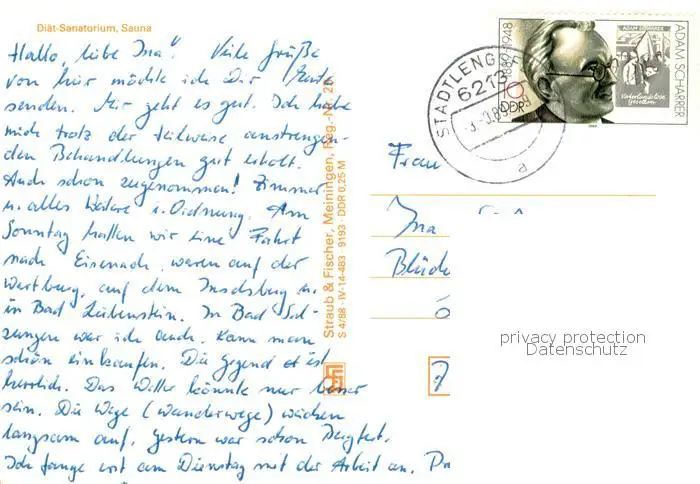 Diät-Sanatorium, Sauna
Hallo, liebe Ina! Viele Grüße
von hier möchte ich Dir heute
senden. Mir geht es gut. Ich habe
mich trotz der teilweise anstrengen-
den Behandlungen gut erholt.
Auch schon zugenommen! Zimmer
u. alles Weitere i. Ordnung. Am
Sonntag hatten wir eine Fahrt
nach Eisenach, waren auf der
Wartburg, auf dem Inselsberg u.
in Bad Liebenstein. In Bad Sal-
zungen war ich auch. Kann man
schön einkaufen. Die Gegend ist
herrlich. Das Wetter könnte nur besser
sein. Die Wege (Wanderwege) weichen
langsam auf. Gestern war schon Bergfest.
Ich fange erst am Dienstag mit der Arbeit an.
Straub & Fischer, Meiningen, Reg.-Nr. 2
S 4/88 · IV-14-483 9193 · DDR 0,25 M
STADTLENGSF
6213
89
a
1889-1948
ADAM SCHARRER
DDR
Vaterlandslose
Gesellen
Frau
Ina
privacy protection
Datenschutz